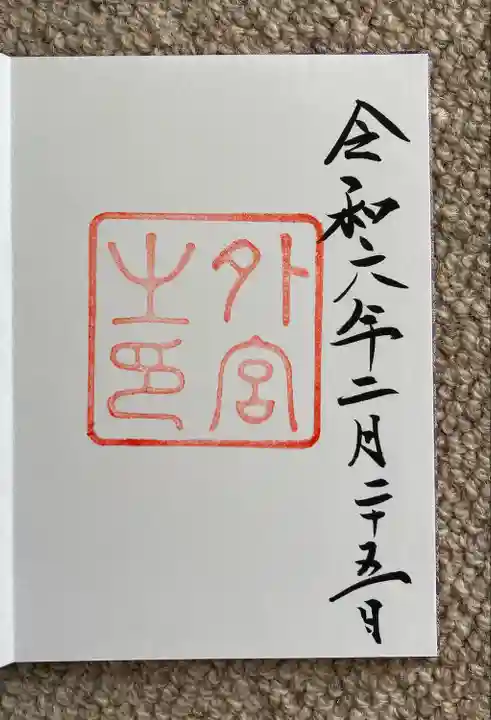 令和六年二月二十五日
外宮
之印